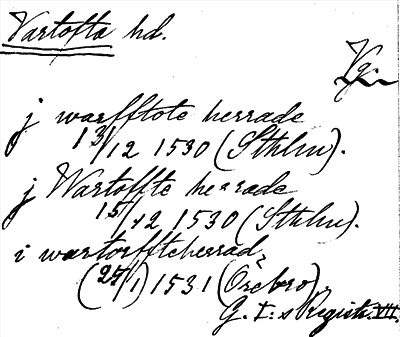 Vartofta hd.
Vg.
j warfftote herrade
13/12 1530 (Sthlm).
j Wartoffte herrade
15/12 1530 (Sthlm).
i wartorffteherrad,
(27/1) 1531 (Örebro).
G. I:s Registr. VII.